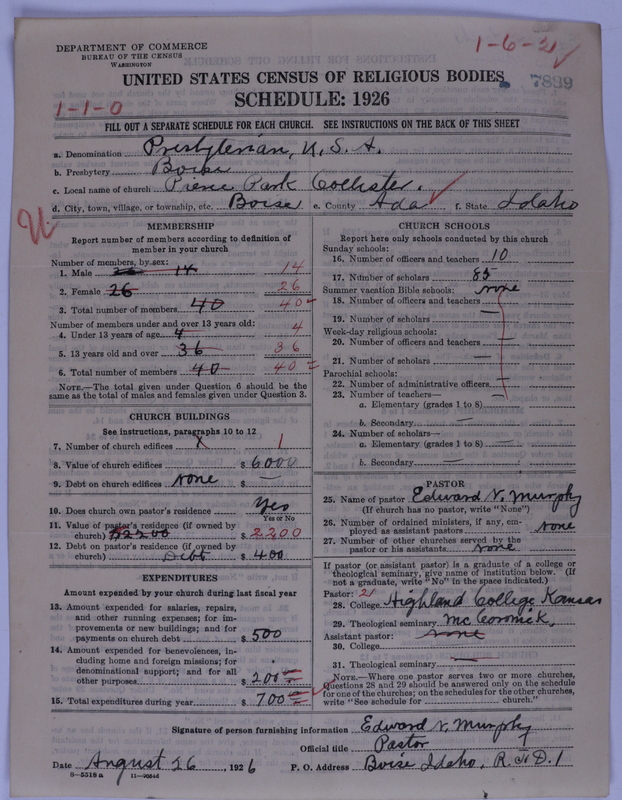 DEPARTMENT OF COMMERCE
BUREAU OF THE CENSUS
WASHINGTON
1-6-21
UNITED STATES CENSUS OF RELIGIOUS BODIES
7839
SCHEDULE: 1926
1-1-0
FILL OUT A SEPARATE SCHEDULE FOR EACH CHURCH. SEE INSTRUCTIONS ON THE BACK OF THIS SHEET
a. Denomination Presbyterian, U.S.A.
b. Presbytery Boise
c. Local name of church Pierce Park Collister.
d. City, town, village, or township, etc. Boise e. County Ada f. State Idaho
MEMBERSHIP
Report number of members according to definition of
member in your church
Number of members, by sex:
1. Male 26 14 14
2. Female 26 26
3. Total number of members 40 40
Number of members under and over 13 years old:
4. Under 13 years of age 4 4
5. 13 years old and over 36 36
6. Total number of members 40 40
NOTE.—The total given under Question 6 should be
same as the total of males and females given under Question 3.
CHURCH BUILDINGS
See instructions, paragraphs 10 to 12
7. Number of church edifices X 1
8. Value of church edifices $ 6000
9. Debt on church edifices None $ —
10. Does church own pastor's residence Yes
Yes or No
11. Value of pastor's residence (if owned by
church) $2200 $ 2200
12. Debt on pastor's residence (if owned by
church) Debt $ 400
EXPENDITURES
Amount expended by your church during last fiscal year
13. Amount expended for salaries, repairs,
and other running expenses; for im-
provements or new buildings; and for
payments on church debt $ 500
14. Amount expended for benevolences, in-
cluding home and foreign missions; for
denominational support; and for all
other purposes $ 200
15. Total expenditures during year $ 700
CHURCH SCHOOLS
Report here only schools conducted by this church
Sunday schools:
16. Number of officers and teachers 10
17. Number of scholars 85
Summer vacation Bible schools: None
18. Number of officers and teachers
19. Number of scholars —
Week-day religious schools:
20. Number of officers and teachers —
21. Number of scholars —
Parochial schools:
22. Number of administrative officers —
23. Number of teachers—
a. Elementary (grades 1 to 8) —
b. Secondary —
24. Number of scholars—
a. Elementary (grades 1 to 8) —
b. Secondary —
PASTOR
25. Name of pastor Edward V. Murphy
(If church has no pastor, write "None")
26. Number of ordained ministers, if any, em-
ployed as assistant pastors None
27. Number of other churches served by the
pastor or his assistants None
If pastor (or assistant pastor) is a graduate of a college or
theological seminary, give name of institution below. (If
not a graduate, write "No" in the space indicated.)
Pastor: 21
28. College Highland College Kansas
29. Theological seminary McCormick,
Assistant pastor: None
30. College
31. Theological seminary —
NOTE.—Where one pastor serves two or more churches,
Questions 28 and 29 should be answered only on the schedule
for one of the churches; on the schedules for the other churches,
write "See schedule for church."
Signature of person furnishing information Edward V. Murphy
Official title Pastor
Date August 26, 1926 P. O. Address Boise Idaho, R.F.D. 1
8—5518 a